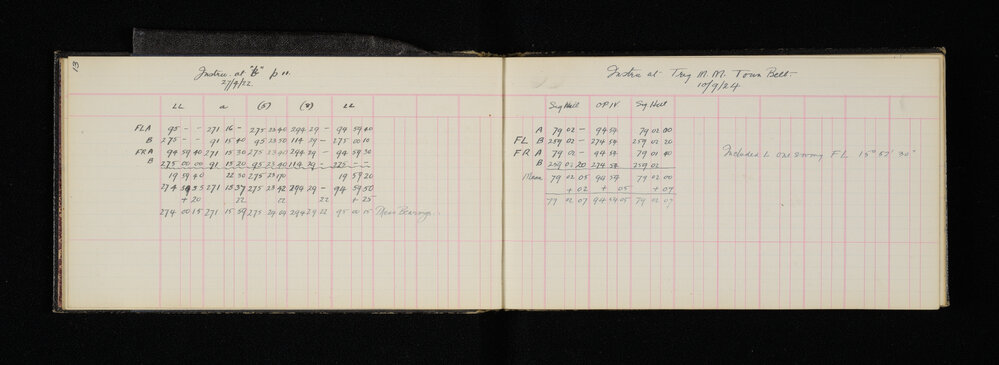 13
Instru. at "b" p 11.
27/9/22.
LL a (5) (8) LL
FLA 95 - - 271 16 - 275 23 40 294 29 - 94 59 40
B 275 - - 91 15 40 95 23 50 114 29 - 275 00 10
FRA 94 59 40 271 15 30 275 23 40 294 29 - 94 59 30
B 275 00 00 91 15 20 95 23 40 114 29 - 275 - -
19 59 40 22 30 275 23 170 19 59 20
271 15 37 275 23 42 294 29 - 94 59 50
+ 20 22 22 22 + 25
274 00 15 271 15 59 294 29 22 95 00 15 Mean Bearings.
Instru at Trig M.M. Town Belt
10/9/24
Sig Hill OP IV Sig Hut
A 79 02 - 94 54 79 02 00
FL B 259 02 - 274 54 259 02 20
FR A 79 02 - 94 54 79 01 40
B 259 02 20 274 54 259 02
Mean 79 02 05 94 54 79 02 00
+ 02 + 05 + 07
79 02 07 94 54 05 79 02 07
Included L one swing FL 15° 52' 30"